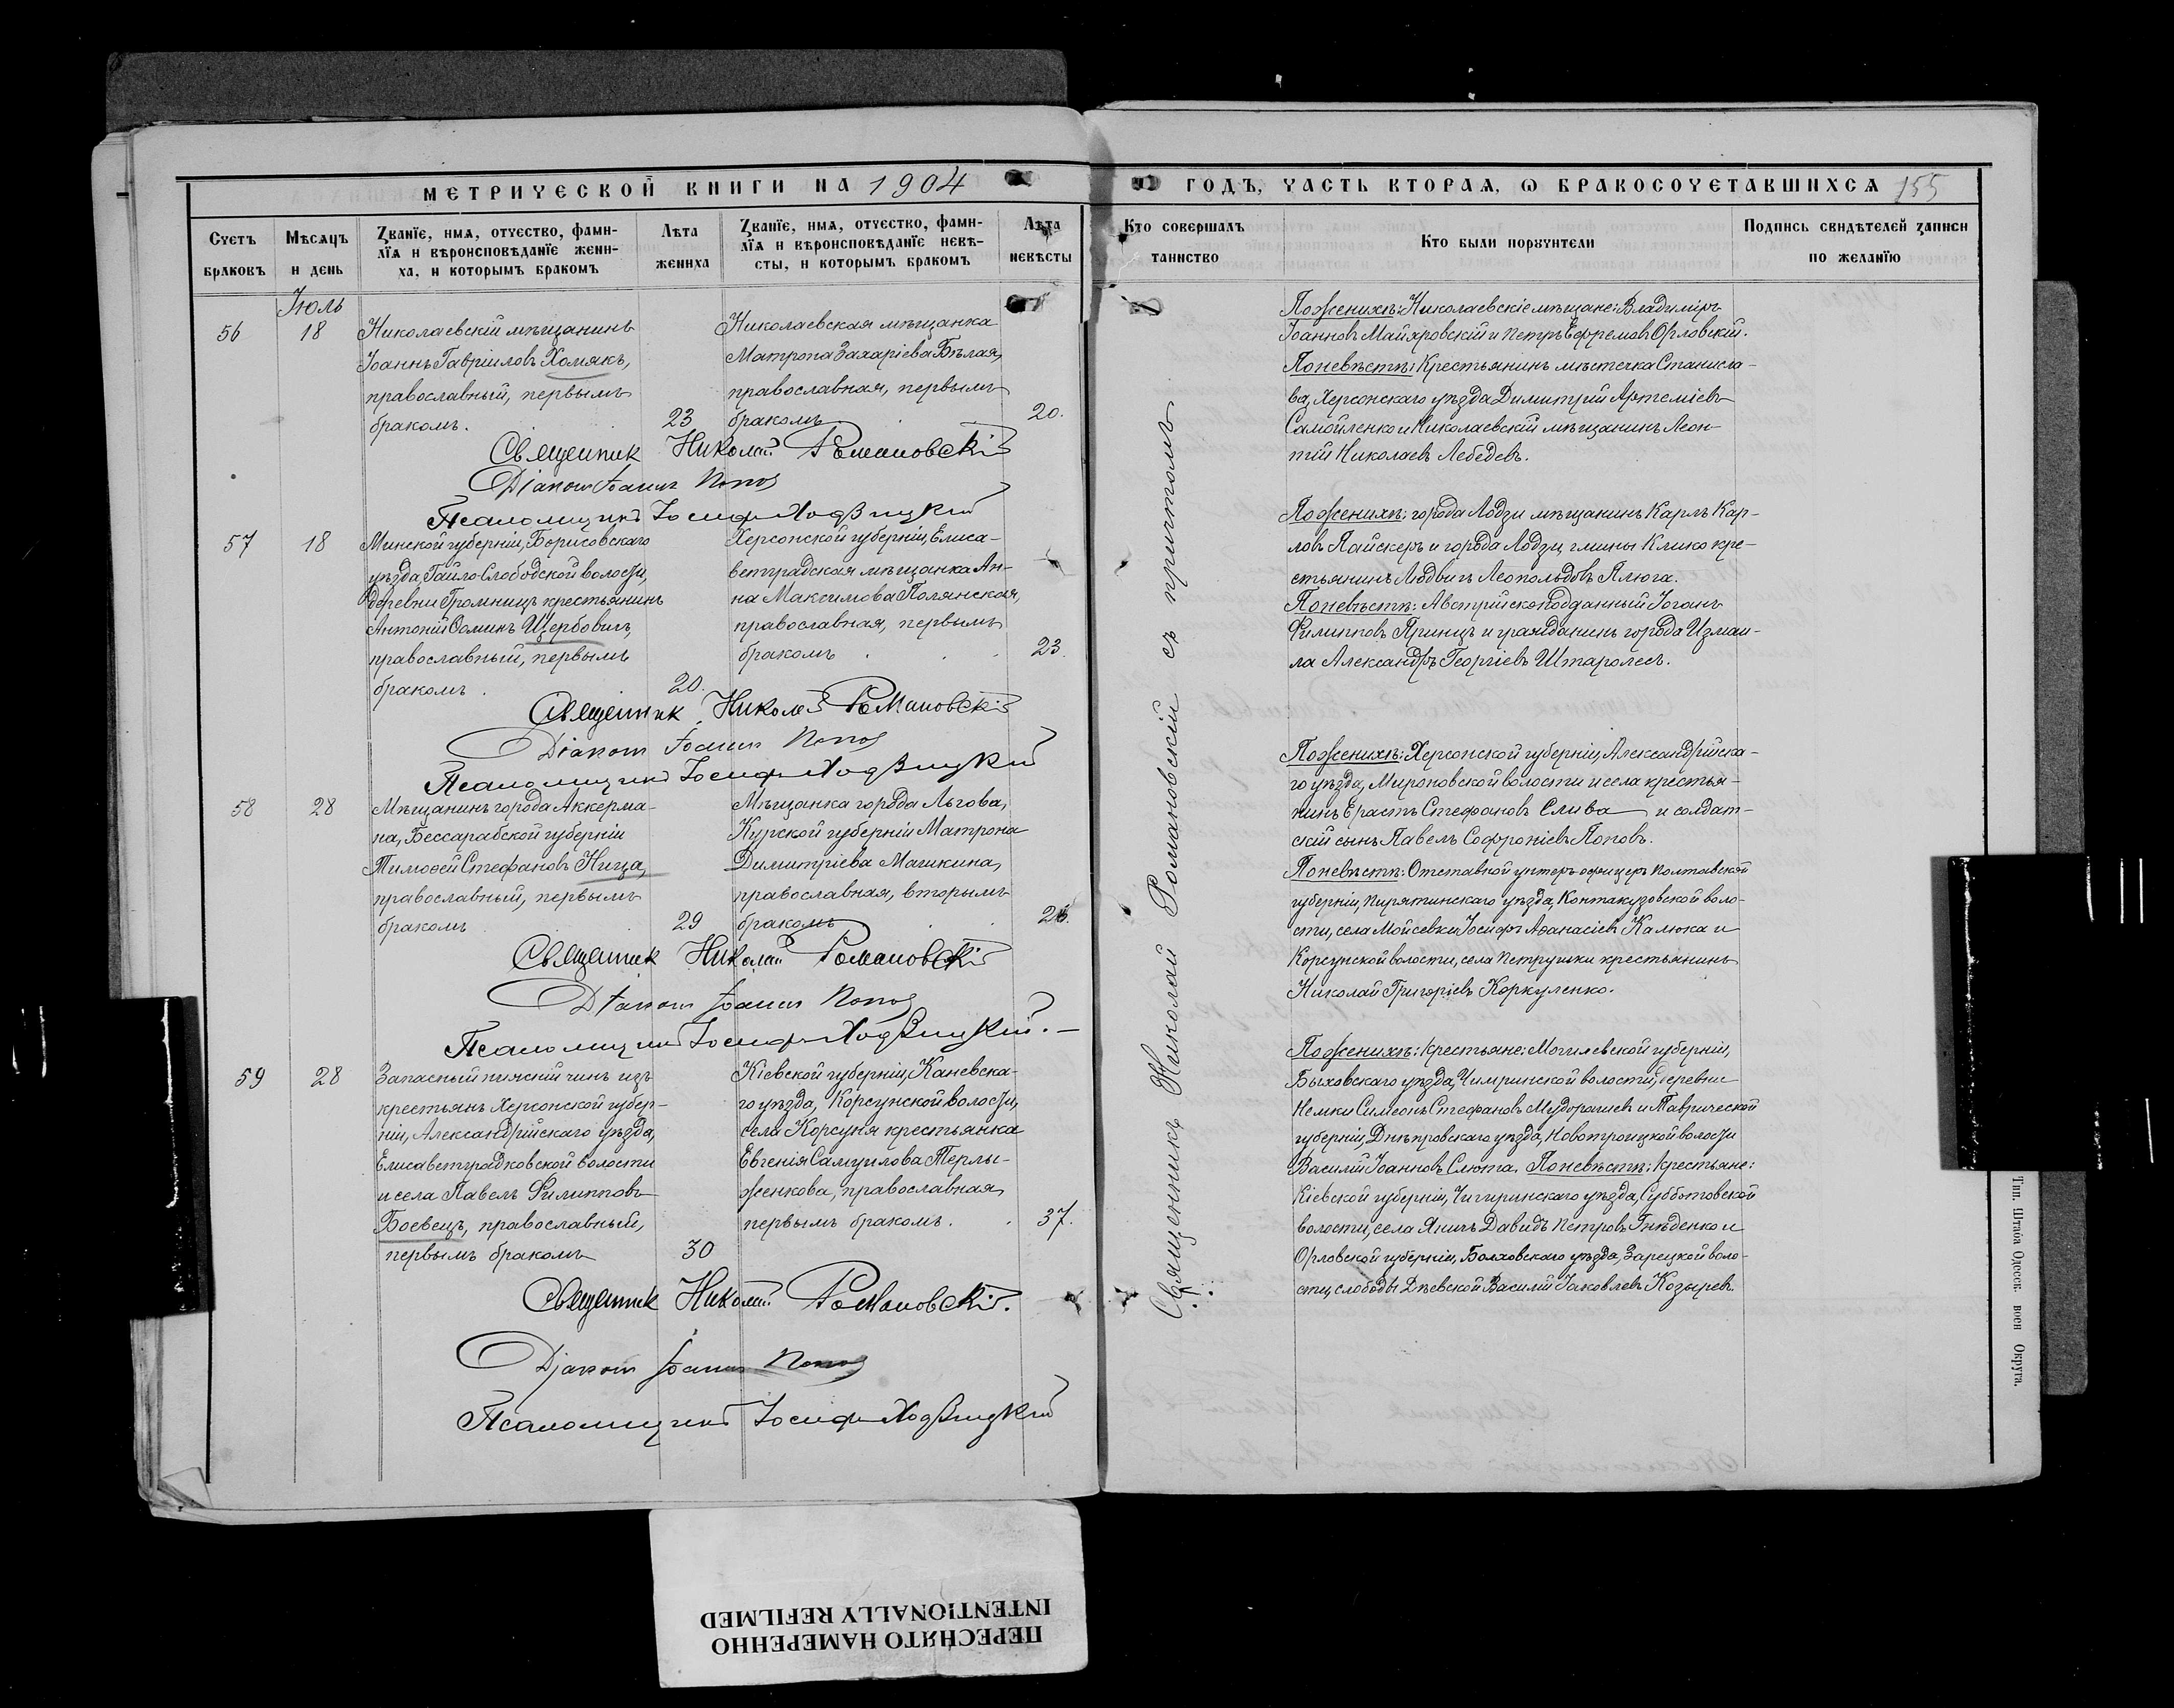 МЕТРИЧЕСКОЙ КНИГИ НА 1904
ГОДЪ, ЧАСТЬ ВТОРАѦ, Ѡ БРАКОСОЧЕТАВШИХСѦ 155
Счетъ браковъ
Мѣсѧцъ и день
Званїе, имѧ, отчество, фами-
лїѧ и вѣроисповѣданїе жени-
ха, и которымъ бракомъ
Лѣта жениха
Званїе, имѧ, отчество, фами-
лїѧ и вѣроисповѣданїе невѣ-
сты, и которымъ бракомъ
Лѣта невѣсты
Кто совершалъ таинство
Кто были поручители
Подпись свидѣтелей записи
по желанїю
Іюль
56
18
Николаевскій мѣщанинъ
Іоаннъ Гавріиловъ Хомякъ,
православный, первымъ
бракомъ.
23
Николаевская мѣщанка
Матрона Захаріева Бѣлая,
православная, первымъ
бракомъ
20.
Священник Николай Романовскій
Діаконъ Іоаннъ
Псаломщикъ Іосифъ Ходзицкій
57
18
Минской губерніи, Борисовскаго
уѣзда, Гайло-Слободской волости,
деревни Громницъ крестьянинъ
Антоній Ѳоминъ Щербовичъ,
православный, первымъ
бракомъ.
20.
Херсонской губерніи, Елиса-
ветградская мѣщанка Ан-
на Максимова Полянская,
православная, первымъ
бракомъ
23.
Священник Николай Романовскій
Діаконъ Іоаннъ
Псаломщикъ Іосифъ Ходзицкій
58
28
Мѣщанинъ города Аккерма-
на, Бессарабской губерніи
Тимоѳей Стефановъ Ница,
православный, первымъ
бракомъ
29
Мѣщанка города Льгова,
Курской губерніи Матрона
Димитріева Машкина,
православная, вторымъ
бракомъ
26.
Священник Николай Романовскій
Діаконъ Іоаннъ
Псаломщикъ Іосифъ Ходзицкій.
59
28
Запасный нижній чинъ изъ
крестьянъ Херсонской губер-
ніи, Александрійскаго уѣзда,
Елисаветградковской волости
и села Павелъ Филипповъ
Боевецъ, православный,
первымъ бракомъ
30
Кіевской губерніи, Каневска-
го уѣзда, Корсунской волости,
села Корсуня крестьянка
Евгенія Самуилова Терлы-
женкова, православная,
первымъ бракомъ.
37.
Священник Николай Романовскій.
Діаконъ Іоаннъ
Псаломщикъ Іосифъ Ходзицкій
Священникъ Николай Романовскій съ причтомъ
По женихѣ: Николаевскіе мѣщане: Владиміръ
Іоанновъ Майяровскій и Петръ Ефремовъ Орловскій.
По невѣстѣ: Крестьянинъ мѣстечка Станисла-
ва, Херсонскаго уѣзда Димитрій Артеміевъ
Самойленко и Николаевскій мѣщанинъ Леон-
тій Николаевъ Лебедевъ.
По женихѣ: города Лодзи мѣщанинъ Карлъ Кар-
ловъ Пайскеръ и города Лодзи, гмины Клико кре-
стьянинъ Людвигъ Леопольдовъ Плюга.
По невѣстѣ: Австрійскоподданный Іоганъ
Филипповъ Принцъ и гражданинъ города Измаи-
ла Александръ Георгіевъ Штаролесъ.
По женихѣ: Херсонской губерніи, Александрійска-
го уѣзда, Мироновской волости и села крестья-
нинъ Ерастъ Стефановъ Слива и солдат-
скій сынъ Павелъ Софроніевъ Поповъ.
По невѣстѣ: Отставной унтеръ-офицеръ Полтавской
губерніи, Пирятинскаго уѣзда, Контакузовской воло-
сти, села Мойсевки Іосифъ Аѳанасіевъ Калюка и
Корсунской волости, села Петрушки крестьянинъ
Николай Григоріевъ Коркуленко.
По женихѣ: Крестьяне: Могилевской губерніи,
Быховскаго уѣзда, Чимринской волости, деревни
Немки Симеонъ Стефановъ Мудорагиевъ и Таврической
губерніи, Днѣпровскаго уѣзда, Новотроицкой волости
Василій Іоанновъ Слюта. По невѣстѣ: Крестьяне:
Кіевской губерніи, Чигиринскаго уѣзда, Субботовской
волости, села Яничъ Давидъ Петровъ Гнѣденко и
Орловской губерніи, Болховскаго уѣзда, Зарецкой воло-
сти, слободы Дѣевской Василій Іаковлевъ Козыревъ.
Тип. Штаба Одесск. воен Округа.
ПЕРЕСНЯТО НАМЕРЕННО
INTENTIONALLY REFILMED